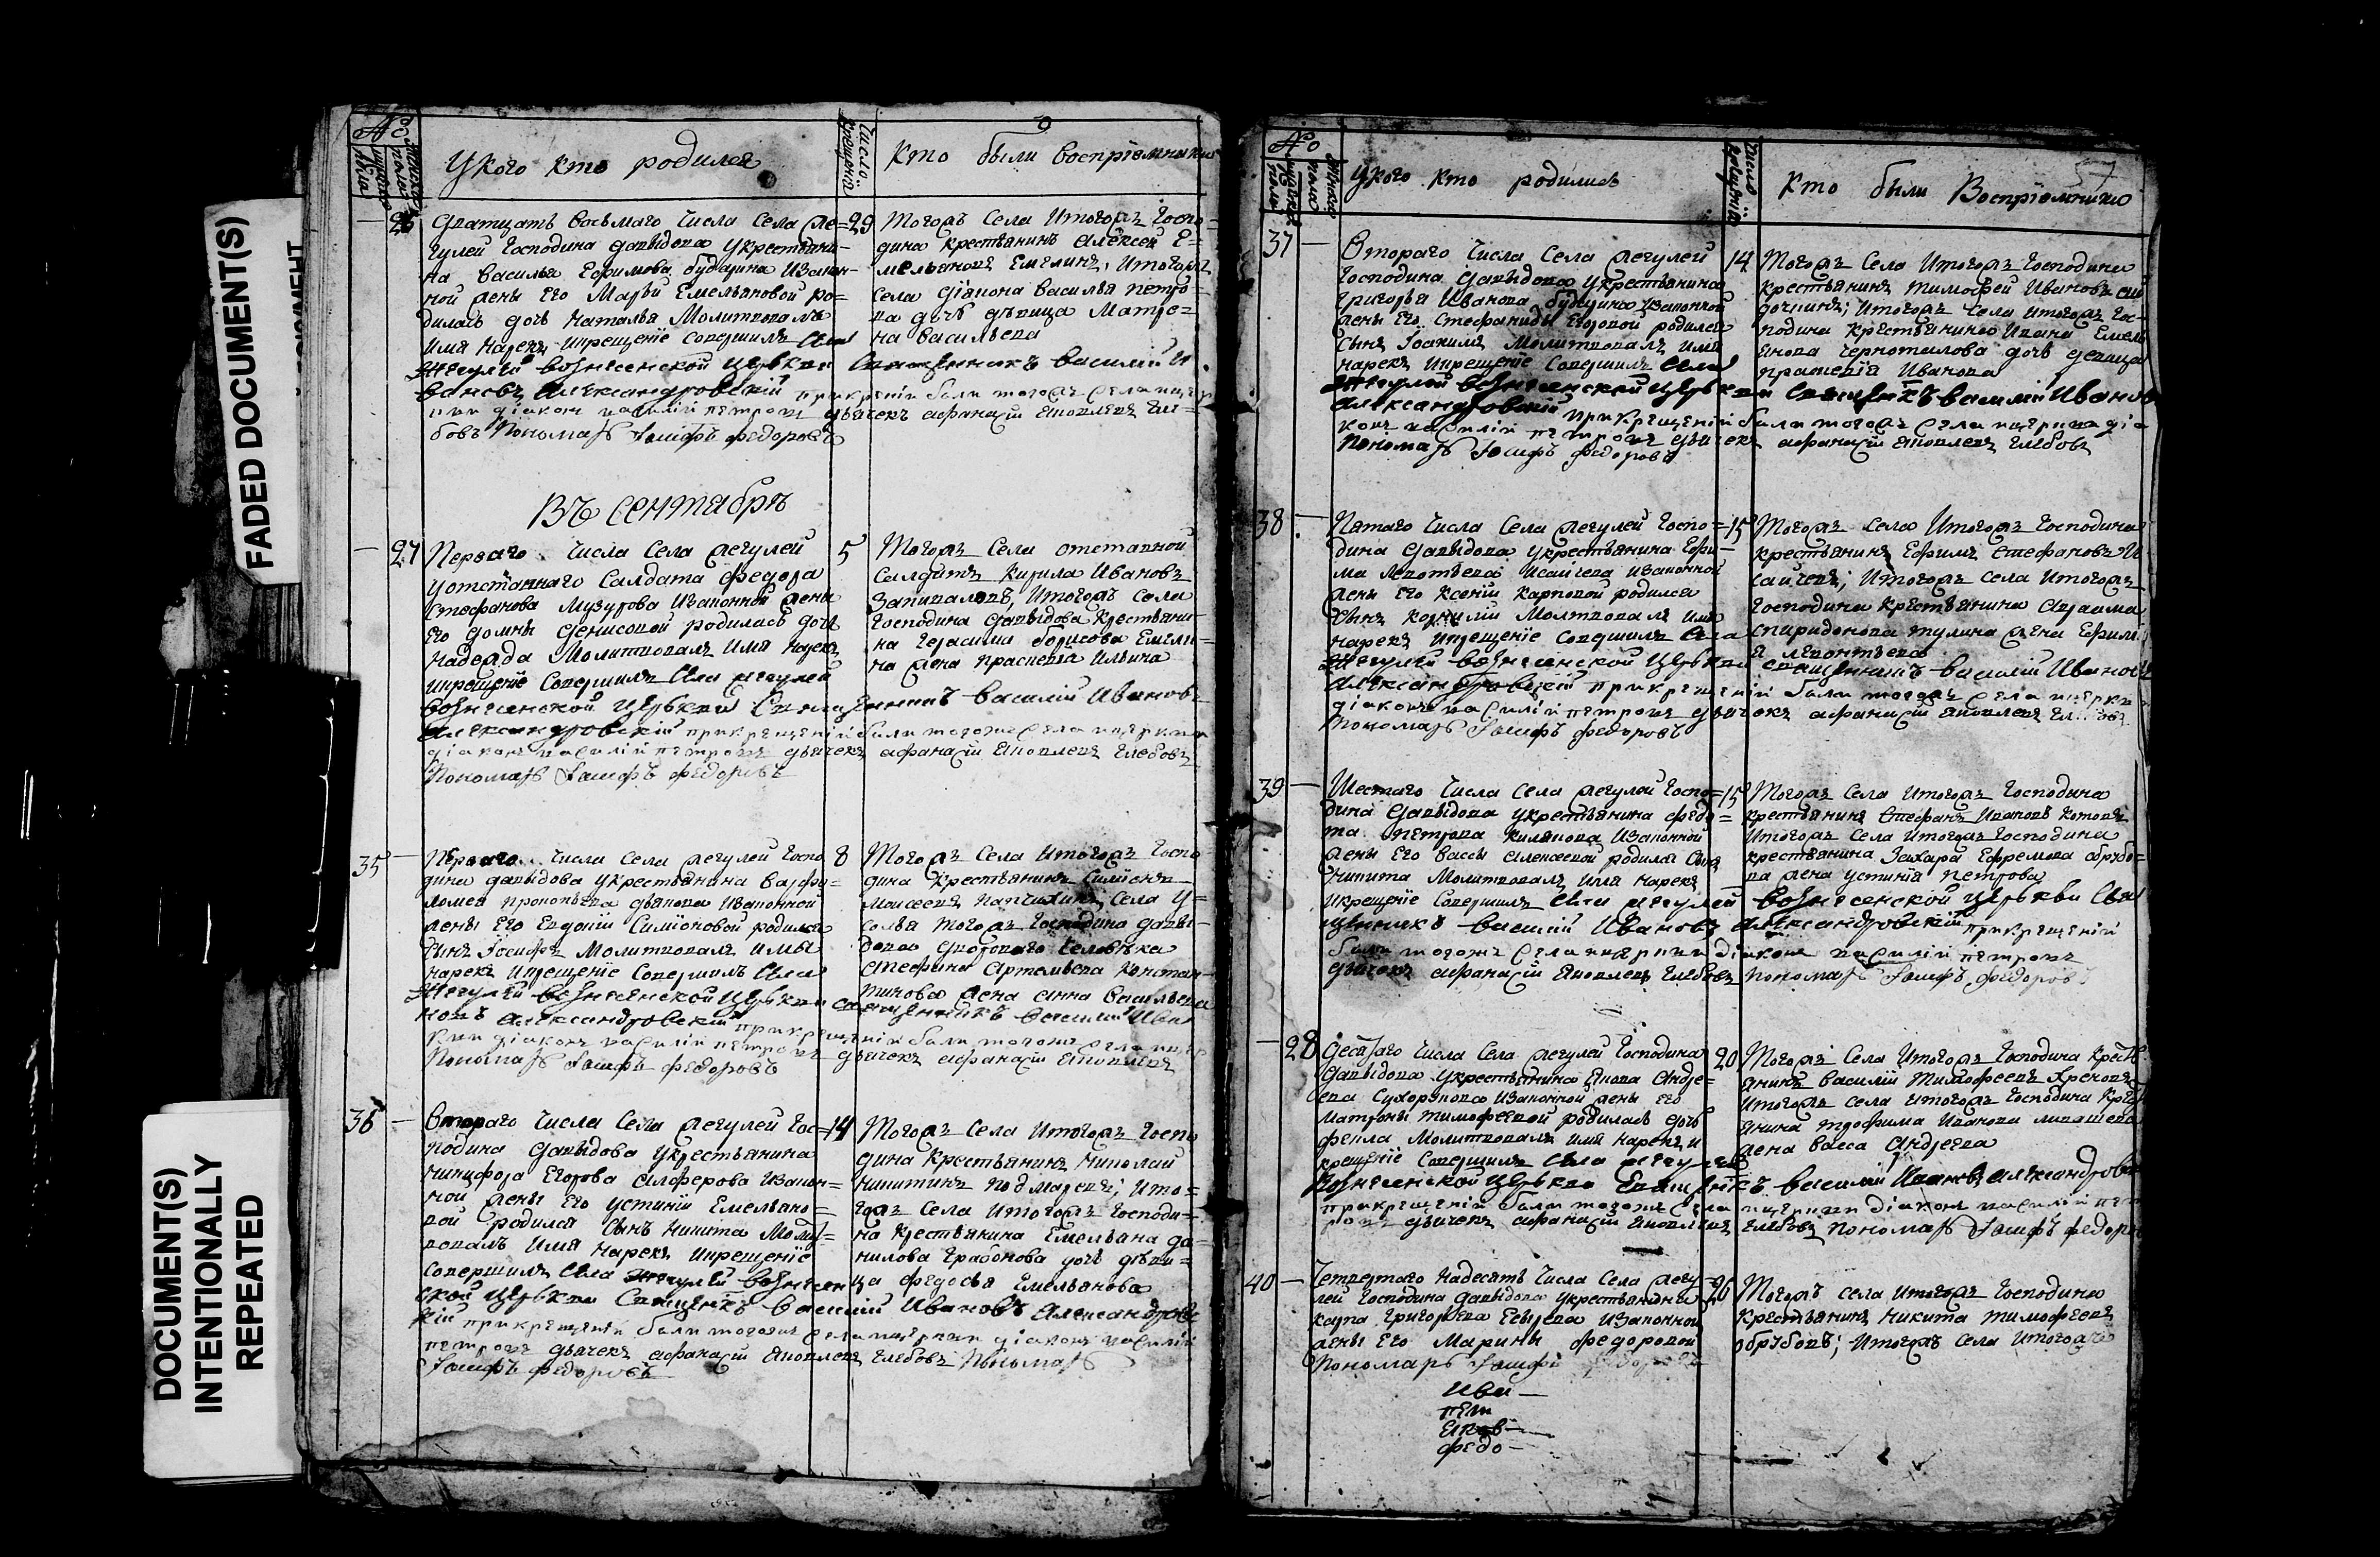 FADED DOCUMENT(S)
DOCUMENT(S)
INTENTIONALLY
REPEATED
№
Число
крещенія
У кого кто родился
Кто были восприемники
26
Дватцать восьмаго числа села Же=
гулей Господина Давыдова у крестьяни-
на Василья Ефимова
ной жены его Марьи Емельяновой ро=
дилась дочь Наталья Молитвовалъ
имя нарекъ икрещение совершилъ села
Жегулей вознесенской церькви Священникъ Василий И
вановъ Александровский при крещении были тогожъ села ицер
кви диаконъ василий петровъ дьячекъ афанасий Яковлевъ Гле=
бовъ Пономарь Иосифъ федоровъ
29
Тогожъ села итогожъ Госпо=
дина крестьянинъ Алексей Е=
мельяновъ Емелинъ, итогожъ
села диакона Василья петро=
ва дочь девица Матре=
на Васильева
Въ сентябре
27
Перваго числа села Жегулей
у отставнаго салдата Федора
Стефанова Музурова Изаконной жены
его Домны Денисовой родилась дочь
Надежда Молитвовалъ имя нарекъ
икрещение совершилъ села Жегулей
вознесенской церькви Священникъ Василий Ивановъ
Александровский при крещении были тогожъ села ицеркви
диаконъ василий петровъ дьячекъ афанасий Яковлевъ Глебовъ
Пономарь Иосифъ федоровъ
5
Тогожъ села отставной
салдатъ Кирила Ивановъ
Запиваловъ, итогожъ села
Господина Давыдова крестьяни-
на Герасима Борисова Емели-
на жена Прасковья Ильина
35
Перваго числа села Жегулей Госпо
дина Давыдова у крестьянина Варфо=
ломея Прокопьева Дьякова Изаконной
жены его Евдокии Симионовой родился
сынъ Иосифъ Молитвовалъ имя
нарекъ икрещение совершилъ села
Жегулей вознесенской церькви священникъ Василий Ива
новъ Александровский при крещении были тогожъ села ицер
кви диаконъ василий петровъ дьячекъ афанасий Яковлевъ
Пономарь Иосифъ федоровъ
8
Тогожъ села итогожъ Госпо
дина крестьянинъ Симионъ
Моисеевъ села У=
солья тогожъ Господина Давы-
дова дворового человека
Стефана Артемьева Констан-
тинова жена Анна Васильева
36
Втораго числа села Жегулей Гос=
подина Давыдова у крестьянина
Никифора Егорова Алферова Изакон=
ной жены его Устинии Емельяно=
вой родился сынъ Никита Молит=
вовалъ имя нарекъ икрещение
совершилъ села Жегулей вознесен
ской церькви Священникъ Василий Ивановъ Александровс
кий при крещении были тогожъ села ицеркви диаконъ василий
петровъ дьячекъ афанасий Яковлевъ Глебовъ Пономарь
Иосифъ федоровъ
14
Тогожъ села итогожъ Госпо
дина крестьянинъ Николай
Никитинъ Подмаревъ; ито=
гожъ села итогожъ Господи=
на крестьянина Емельяна Да=
нилова Грабонова дочь деви=
ца Федосья Емельянова
№
Число
крещения
57
У кого кто родились
Кто были Восприемники
37
Втораго числа села Жегулей
Господина Давыдова у крестьянина
Григорья Иванова Изаконной
жены его Стефаниды Егоровой родился
сынъ Иоакимъ Молитвовалъ имя
нарекъ икрещение совершилъ села
Жегулей вознесенской церькви Священникъ Василий Ивановъ
Александровский при крещении были тогожъ села ицеркви диа
конъ василий петровъ дьячекъ афанасий Яковлевъ Глебовъ
Пономарь Иосифъ федоровъ
14
Тогожъ села итогожъ Господина
крестьянинъ Тимофей Ивановъ
итогожъ села итогожъ Гос=
подина крестьянина Ивана Емель
янова Чернотилова дочь девица
Иванова
38
Пятаго числа села Жегулей Госпо=
дина Давыдова у крестьянина Ефи-
ма Леонтьева Исайчева Изаконной
жены его Ксении Карповой родился
сынъ Корнилий Молитвовалъ имя
нарекъ икрещение совершилъ села
Жегулей вознесенской церькви священникъ Василий Ивановъ
Александровский при крещении были тогожъ села ицеркви
диаконъ василий петровъ дьячекъ афанасий Яковлевъ
Пономарь Иосифъ федоровъ
15
Тогожъ села итогожъ Господина
крестьянинъ Ефимъ Стефановъ И
сайчевъ; итогожъ села итогожъ
Господина крестьянина
Спиридонова Тулина жена Ефими
я Леонтьева
39
Шестаго числа села Жегулей Госпо=
дина Давыдова у крестьянина Федо=
та Петрова Изаконной
жены его Вассы Алексеевой родился сынъ
Никита Молитвовалъ имя нарекъ
икрещение совершилъ села Жегулей вознесенской церькви Свя
щенникъ Василий Ивановъ Александровский при крещении
были тогожъ села ицеркви диаконъ василий петровъ
дьячекъ афанасий Яковлевъ Глебовъ Пономарь Иосифъ федоровъ
15
Тогожъ села итогожъ Господина
крестьянинъ Стефанъ Ивановъ Котовъ
итогожъ села итогожъ Господина
крестьянина Захара Ефремова Обрубо=
ва жена Устиния Петрова
28
Десятаго числа села Жегулей Господина
Давыдова у крестьянина Якова Андре=
ева Сухорукова Изаконной жены его
Матроны Тимофеевой родилась дочь
Фекла Молитвовалъ имя нарекъ и
крещение совершилъ села Жегулей
вознесенской церькви Священникъ Василий Ивановъ Александровс
при крещении были тогожъ села ицеркви диаконъ василий пет
ровъ дьячекъ афанасий Яковлевъ Глебовъ Пономарь Иосифъ федоров
20
Тогожъ села итогожъ Господина крест
янинъ Василий Тимофеевъ
итогожъ села итогожъ Господина крест
янина Трофима Иванова
жена Васса Андреева
40
Четвертаго надесять числа села Жегу=
лей Господина Давыдова у крестьянина
Карпа Григорьева Изаконной
жены его Марины Федоровой
Пономарь Иосифъ
26
Тогожъ села итогожъ Господина
крестьянинъ Никита Тимофеевъ
Обрубовъ; итогожъ села итогожъ
Ива—
пет
Яков—
федо—